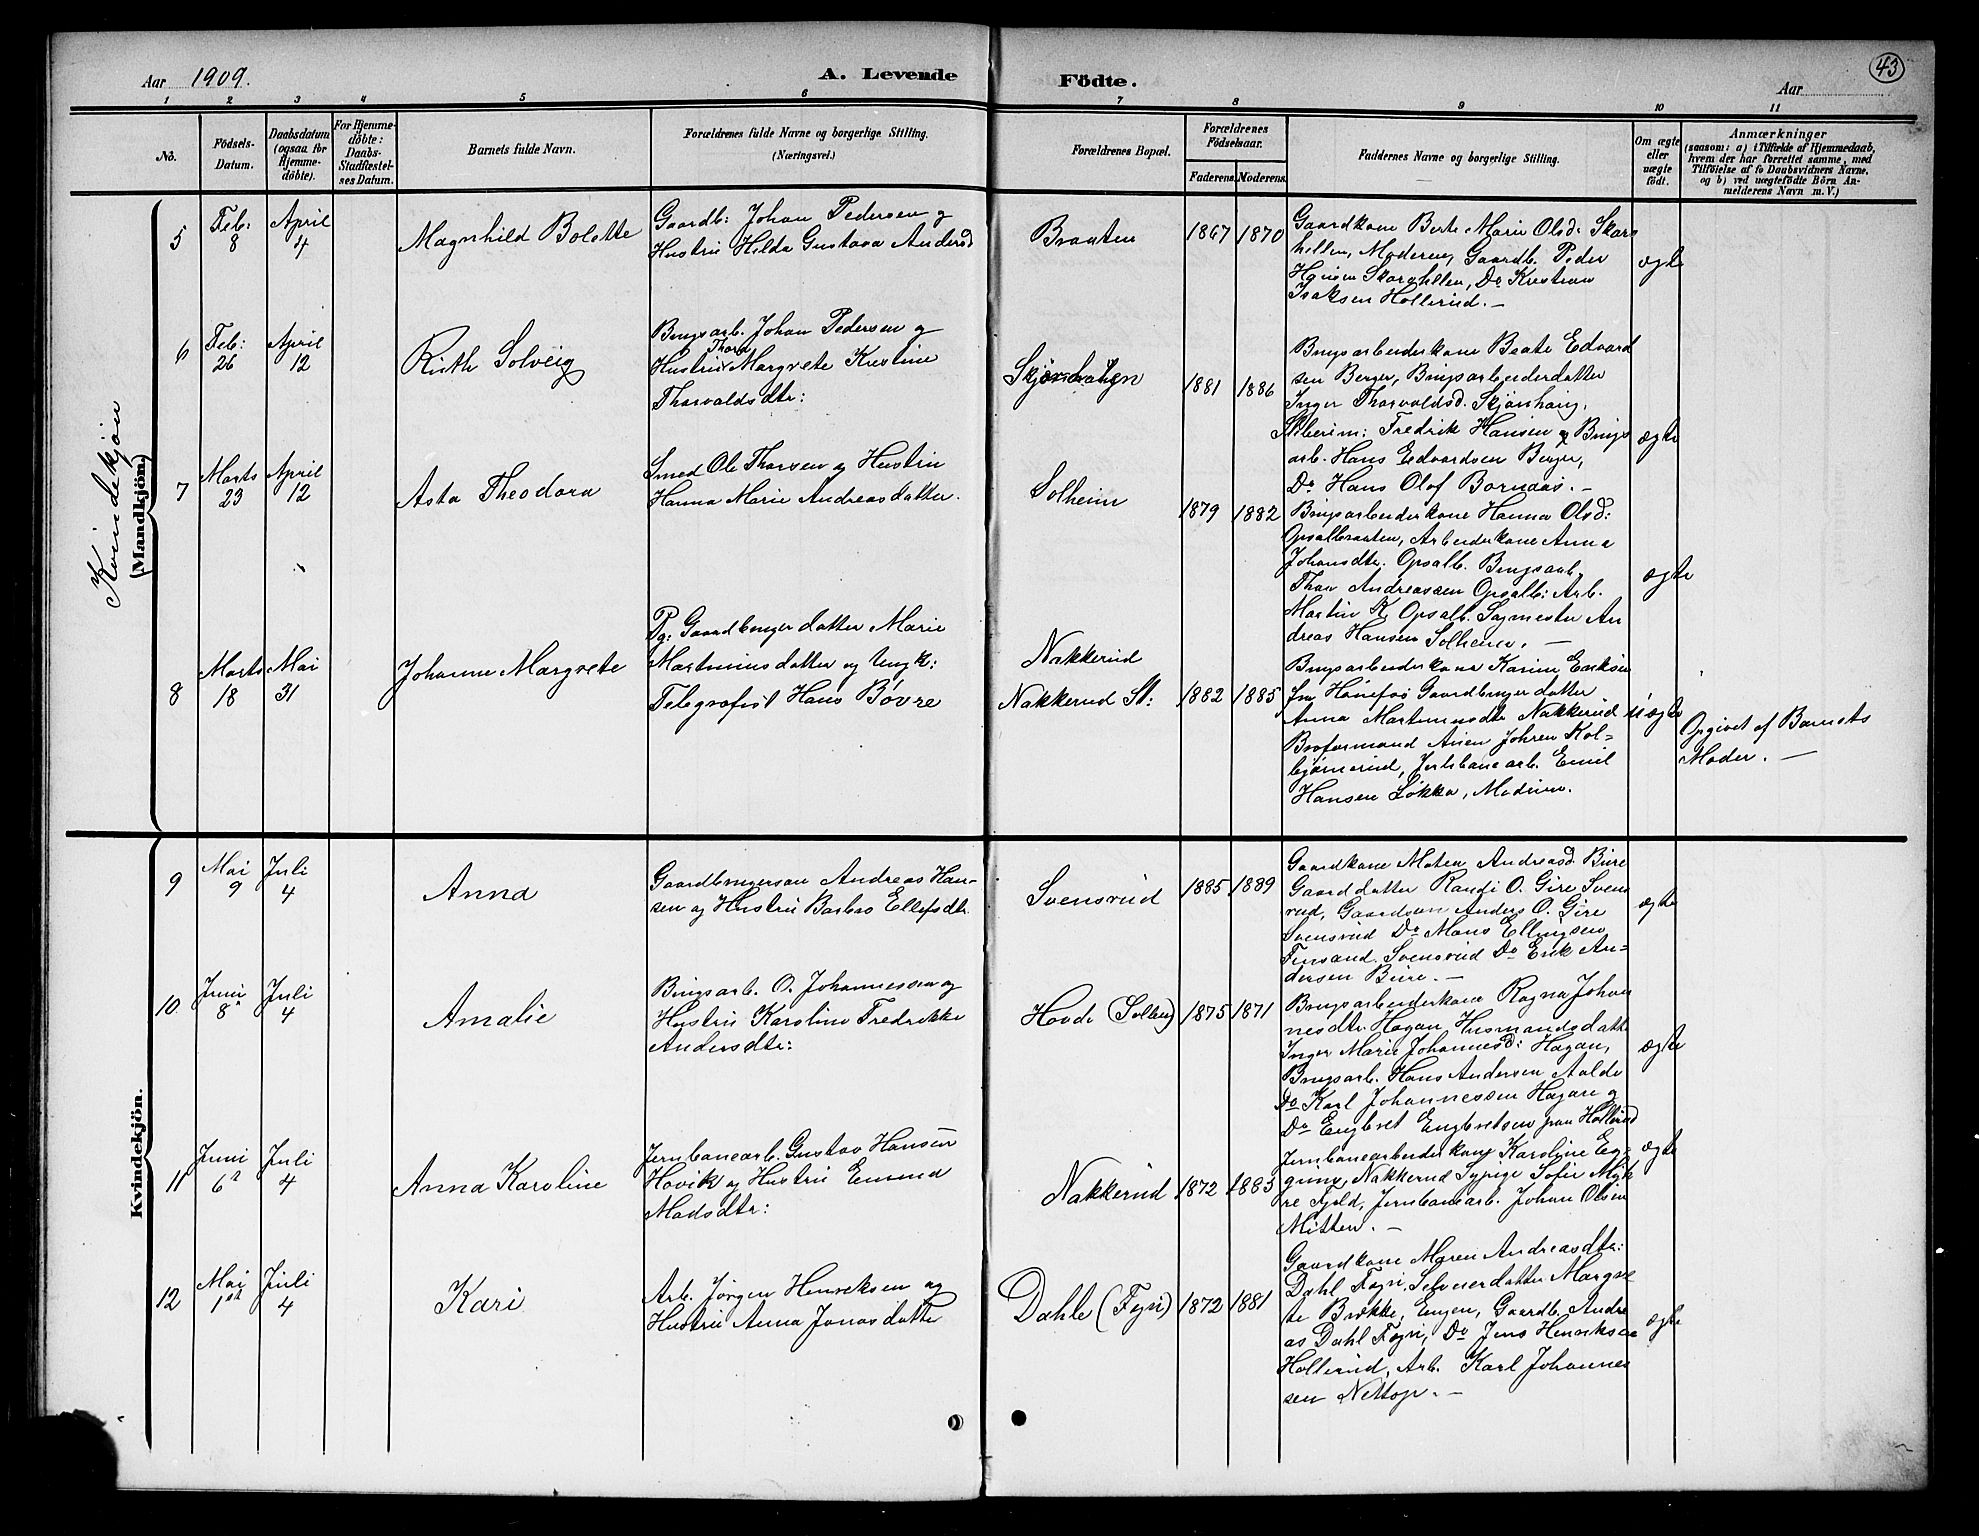 Aar 1909.
A. Levende
Födte.
Aar
43
1 2 3 4 5 6 7 8 9 10 11
No.
Födsels-
Datum.
Daabsdatum
(ogsaa for
Hjemme-
döbte).
For Hjemme-
döbte:
Daabs-
Stadfæstel-
ses Datum.
Barnets fulde Navn.
Forældrenes fulde Navne og borgerlige Stilling.
(Næringsvei.)
Forældrenes Bopæl.
Forældrenes
Födselsaar.
Faderens. Moderens.
Faddernes Navne og borgerlige Stilling.
Om ægte
eller
uægte
födt.
Anmærkninger
(saasom: a) i Tilfælde af Hjemmedaab,
hvem der har forrettet samme, med
Tilföielse af to Daabsvidners Navne,
og b) ved uægtefödte Börn An-
melderens Navn m. V.)
Kvindekjön
(Mandkjön.)
5
Feb:
8
April
4
Magnhild Bolette
Gaardb: Johan Pedersen og
Hustru Hilda Gustava Andersd
Braaten
1867 1870
Gaardkone Berte Marie Olsd. Skars
hellen, Moderen, Gaardb. Peder
Hansen Skarshellen, Do Kristian
Isaksen Hollerud. –
ægte
6
Feb:
26
April
12
Ruth Solveig
Brugsarb. Johan Pedersen og
Thora
Hustru Margrete Kristine
Thorvaldsdtr:
1881 1886
Brugsarbeiderkone Beate Edvard
sen Berger, Brugsarbeiderdatter
Inger Thorvaldsd. Skjønhaug,
Fredrik Hansen og Brugs
arb. Hans Edvardsen Berger,
Do Hans Olof Borndas. –
ægte
7
Marts
23
April
12
Asta Theodora
Smed Ole Thorsen og Hustru
Hanna Marie Andreasdatter.
Solheim
1879 1882
Brugsarbeiderkone Hanna Olsd:
Opsalbraaten, Arbeiderkone Anna
Johansdtr. Opsalb. Brugsarb.
Thor Andreassen Opsalb: Arb.
Martin K. Opsalb. Sagmester An
dreas Hansen Solheim. –
ægte
8
Marts
18
Mai
31
Johanne Margrete
Pg: Gaardbrugerdatter Marie
Martiniusdatter og Ungk:
Telegrafist Hans Bøvre
Nakkerud
Nakkerud St:
1882 1885
Brugsarbeiderkone Karine Eriksen
fra Hønefos Gaardbrugerdatter
Anna Martinusdtr Nakkerud
Broformand Johren Kol-
bjørnerud, Jernbanearb. Emil
Hansen Løkka, Modum.
uægte
Opgivet af Barnets
Moder. –
Kvindekjön.
9
Mai
9
Juli
4
Anna
Gaardbrugersøn Andreas Han-
sen og Hustru Barbro Ellefsdtr
Svensrud
1885 1889
Gaardkone Maten Andreasd. Bure
Gaarddatter Randi O. Gire Svens
rud, Gaardsøn Anders O. Gire
Svensrud Do Hans Ellingsen
Finsand. Svensrud Do Erik An-
dersen Bure. –
ægte
10
Juni
8
Juli
4
Amalie
Brugsarb. O. Johannessen og
Hustru Karoline Fredrikke
Andersdtr:
Hovde (Solberg)
1875 1871
Brugsarbeiderkone Ragna Johan
nesdtr. Hagan, Husmandsdatter
Inger Marie Johannesd: Hagan,
Brugsarb. Hans Andersen Aalde
Do Karl Johannessen Hagan og
Do Engbret Engbretsen paa Hollerud
ægte
11
Juni
6
Juli
4
Anna Karoline
Jernbanearb. Gustav Hansen
Hovik og Hustru Emma
Madsdtr:
Nakkerud
1872 1883
Jernbanearbeiderkone Karoline Eg-
Nakkerud Sypige Sofie Myh
re Fjeld, Jernbanearb. Johan Olsen
Mitten. –
ægte
12
Mai
1st
Juli
4
Kari
Arb. Jørgen Henriksen og
Hustru Anna Jonasdatter
Dahle (Fyri)
1872 1881
Gaardkone Maren Andreasdtr:
Dahl Fyri, Selveierdatter Margre
te Brække, Engen, Gaardb. Andre
as Dahl Fyri, Do Jens Henriksen
Hollerud, Arb. Karl Johannes
sen Nettop. –
ægte